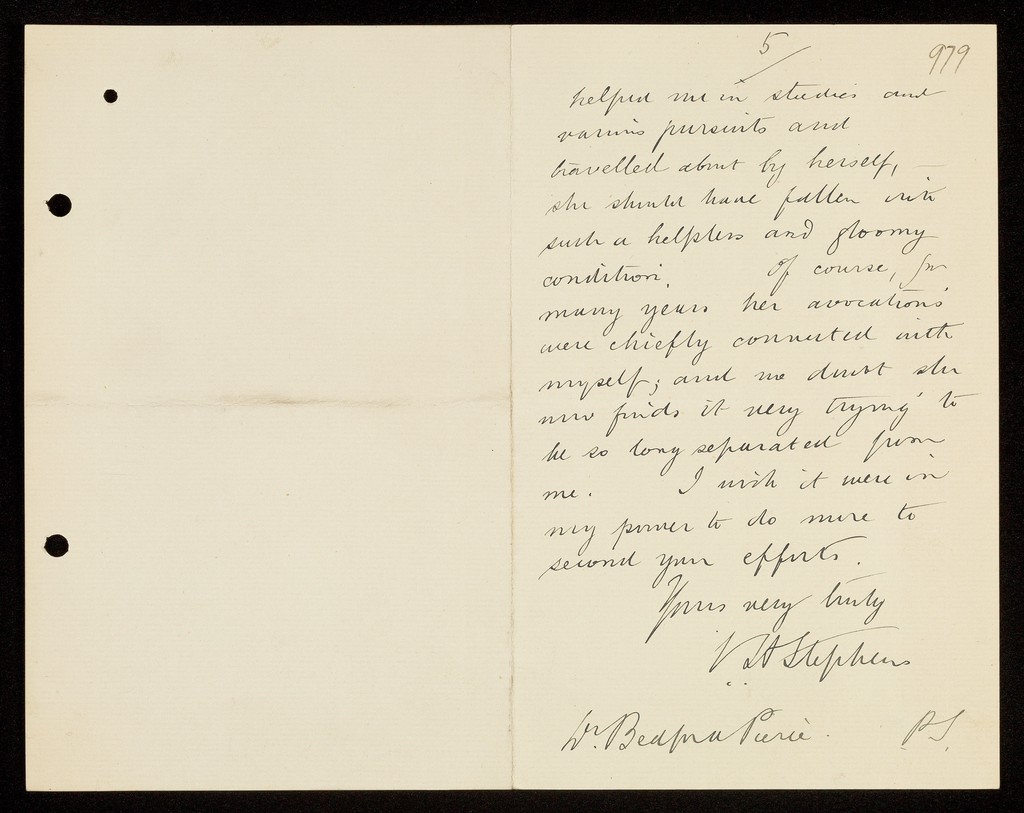 5
979
helped me in studies and
various pursuits and
travelled about by herself, —
she should have fallen into
such a helpless and gloomy
condition. Of course, for
many years her avocations
were chiefly connected with
myself; and no doubt she
now finds it very trying to
be so long separated from
me. I wish it were in
my power to do more to
second your efforts.
Yours very truly
Stephens
Dr. Bedford Pierce. P.S.